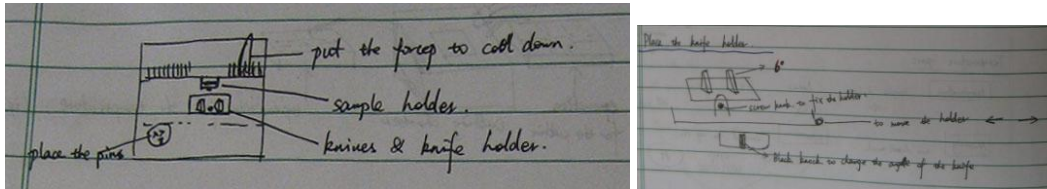 put the forcep to cool down.
sample holder.
knives & knife holder.
place the pins
Place the knife holder.
6°
screw knob to fix the holder.
to move the holder
Black knock to change the angle of the knife